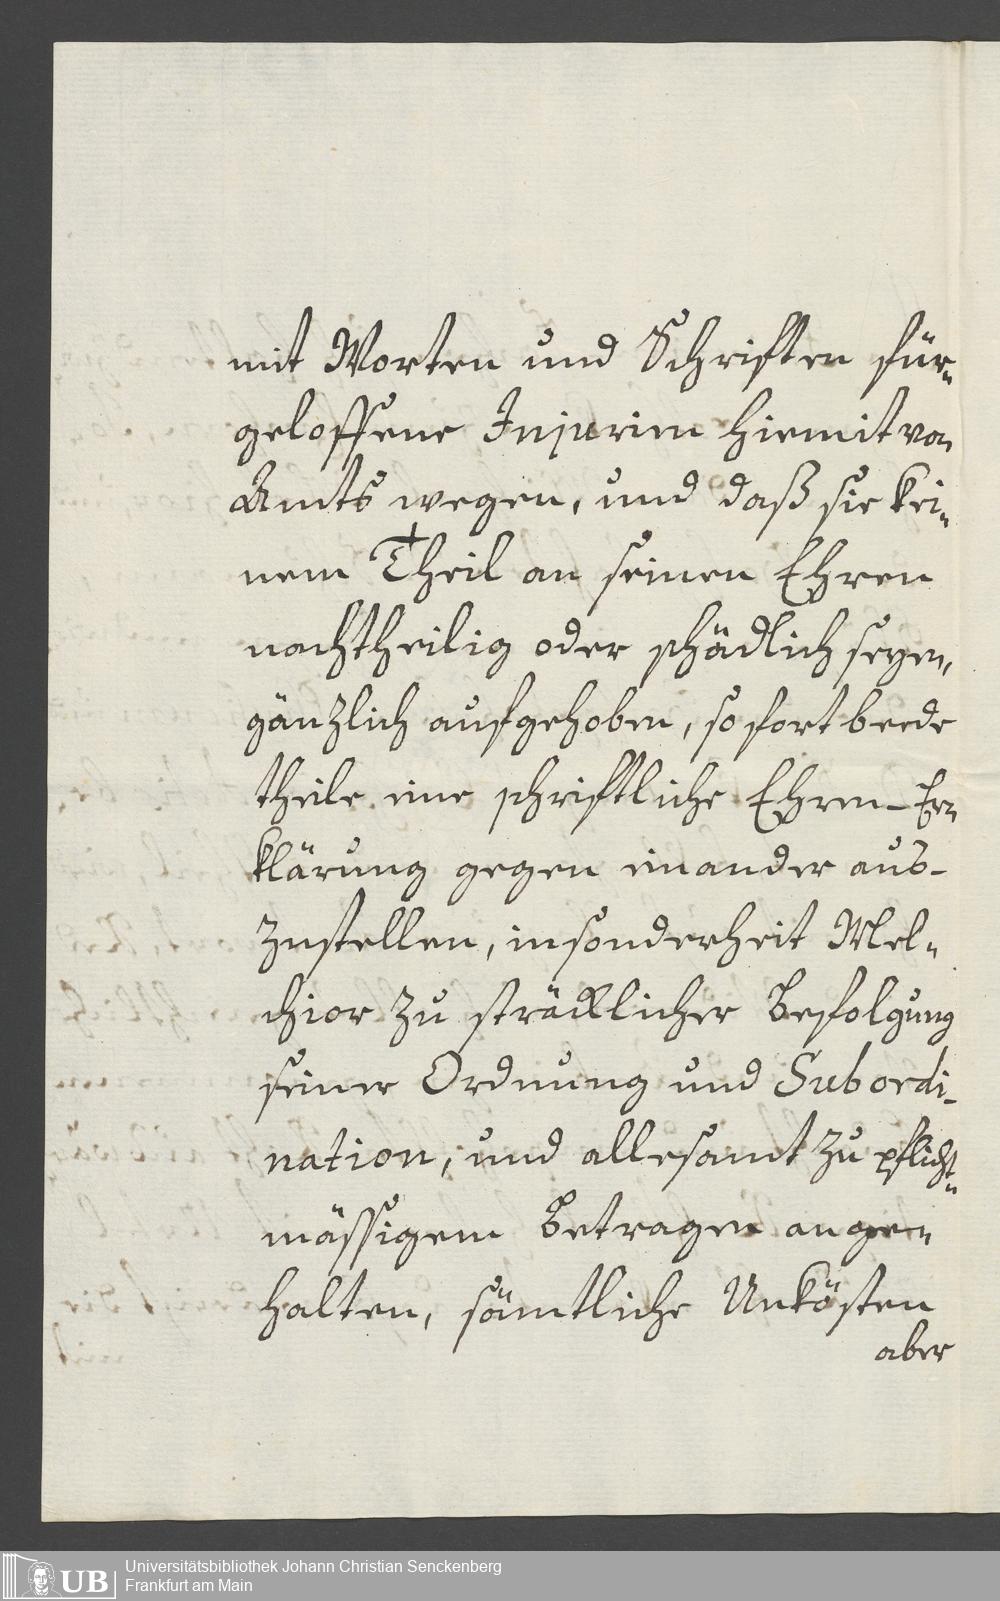 mit Worten und Schrifften für-
geloffene Injurien hiemit von
Amts wegen, und daß sie kei-
nem Theil an seinen Ehren
nachtheilig oder schädlich seyen,
gänzlich aufgehoben, so fort beede
theile eine schrifftliche Ehren-Er-
klärung gegen einander aus-
zustellen, insonderheit Mel-
chior zu sträcklicher Befolgung
seiner Ordnung und Subordi-
nation, und allesamt zu pflicht-
mässigem Betragen ange-
halten, sämtliche Unkösten
aber
UB
Universitätsbibliothek Johann Christian Senckenberg
Frankfurt am Main